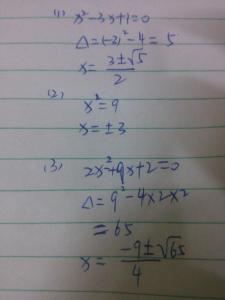 (1) x²-3x+1=0
Δ=(-3)²-4=5
x=(3±√5)/2
(2)
x²=9
x=±3
(3) 2x²+9x+2=0
Δ=9²-4×2×2
=65
x=(-9±√65)/4